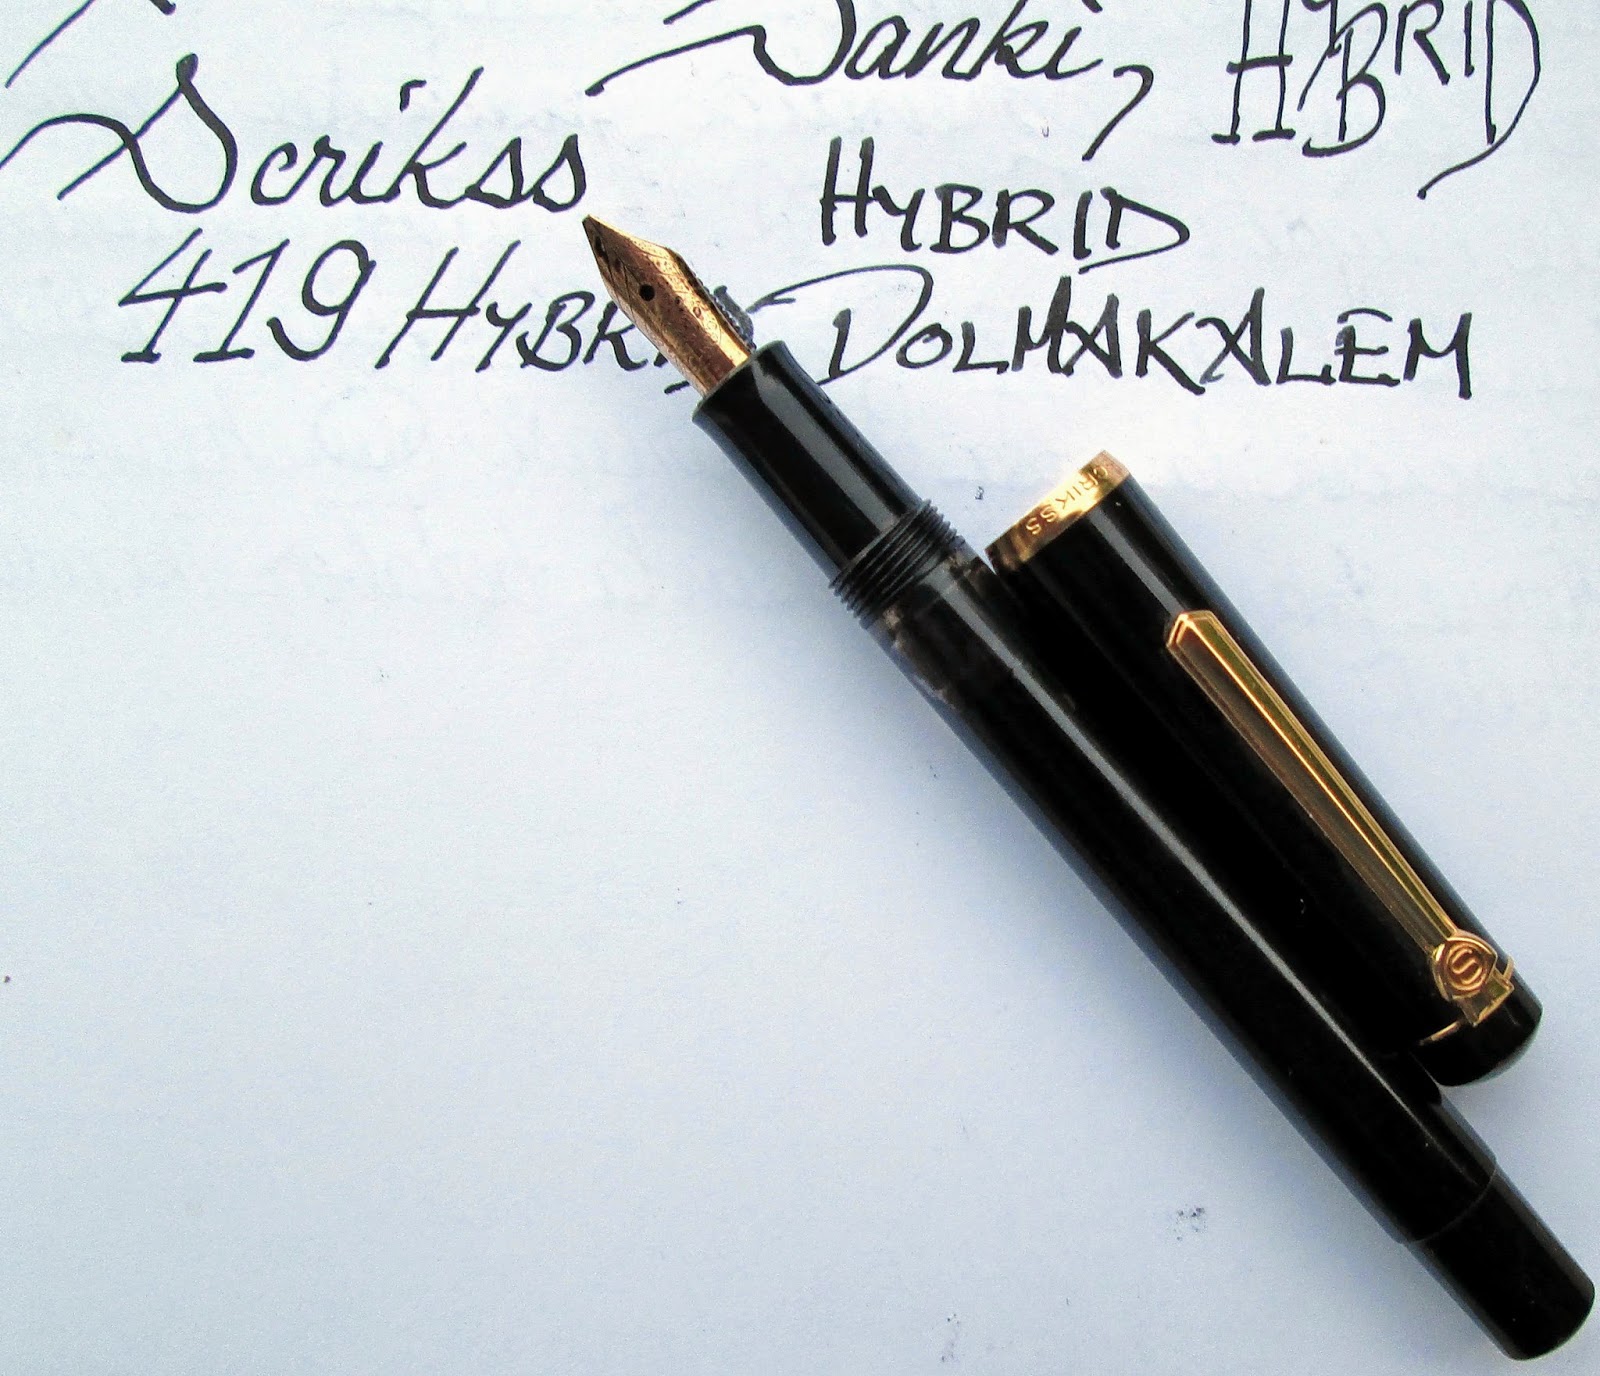 Sanki, HYBRID
Scrikss
HYBRID
419 HYBRID
DOLMAKALEM
CRIKSS
S